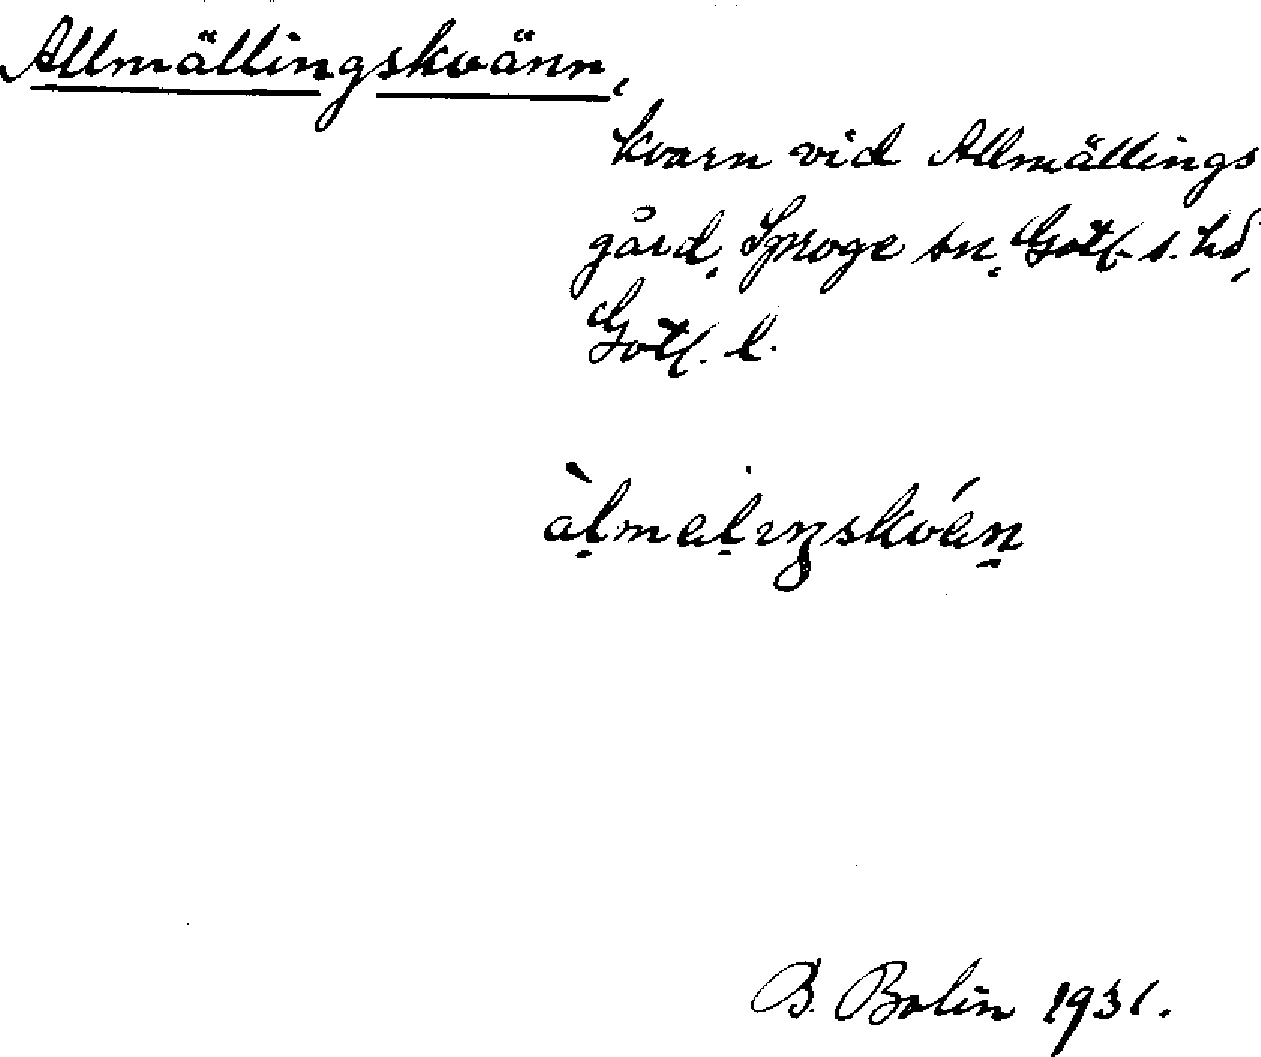 Allmällingskvänn,
kvarn vid Allmällings
gård, Sproge sn, Gotl. s. hd,
Gotl. l.
àl̤mal̤ıŋskván̤
B. Bolin 1931.